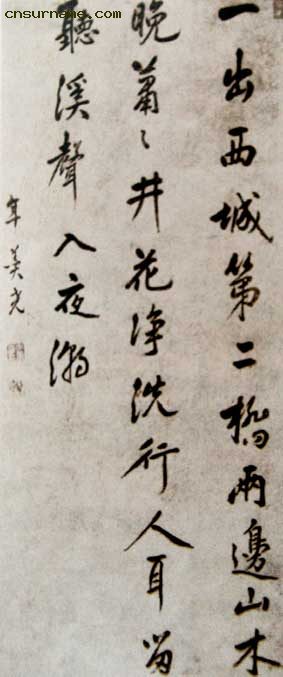 cnsurname.com
一出西城第二橋兩邊山木
晚蕭〻井花淨洗行人耳留
聽溪聲入夜潮
笪重光